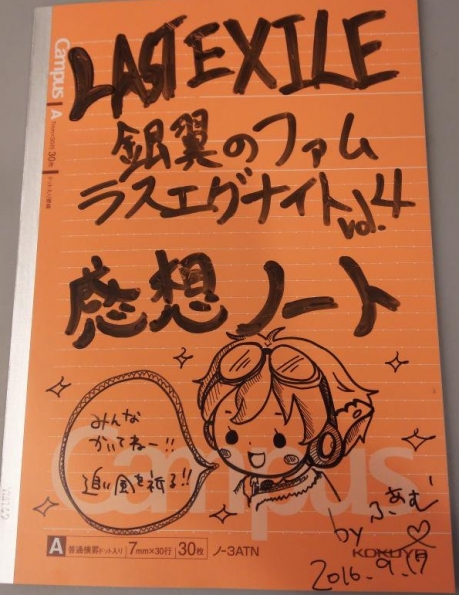 LAST EXILE
銀翼のファム
ラスエグナイト vol.4
感想ノート
みんな
かいてねー!!
追い風を祈る!!
by ふぁむ♡
2016.9.17
Campus
A
普通横罫 ドット入り 7mm×30行 30枚 ノ-3ATN
KOKUYO
Campus A
30枚